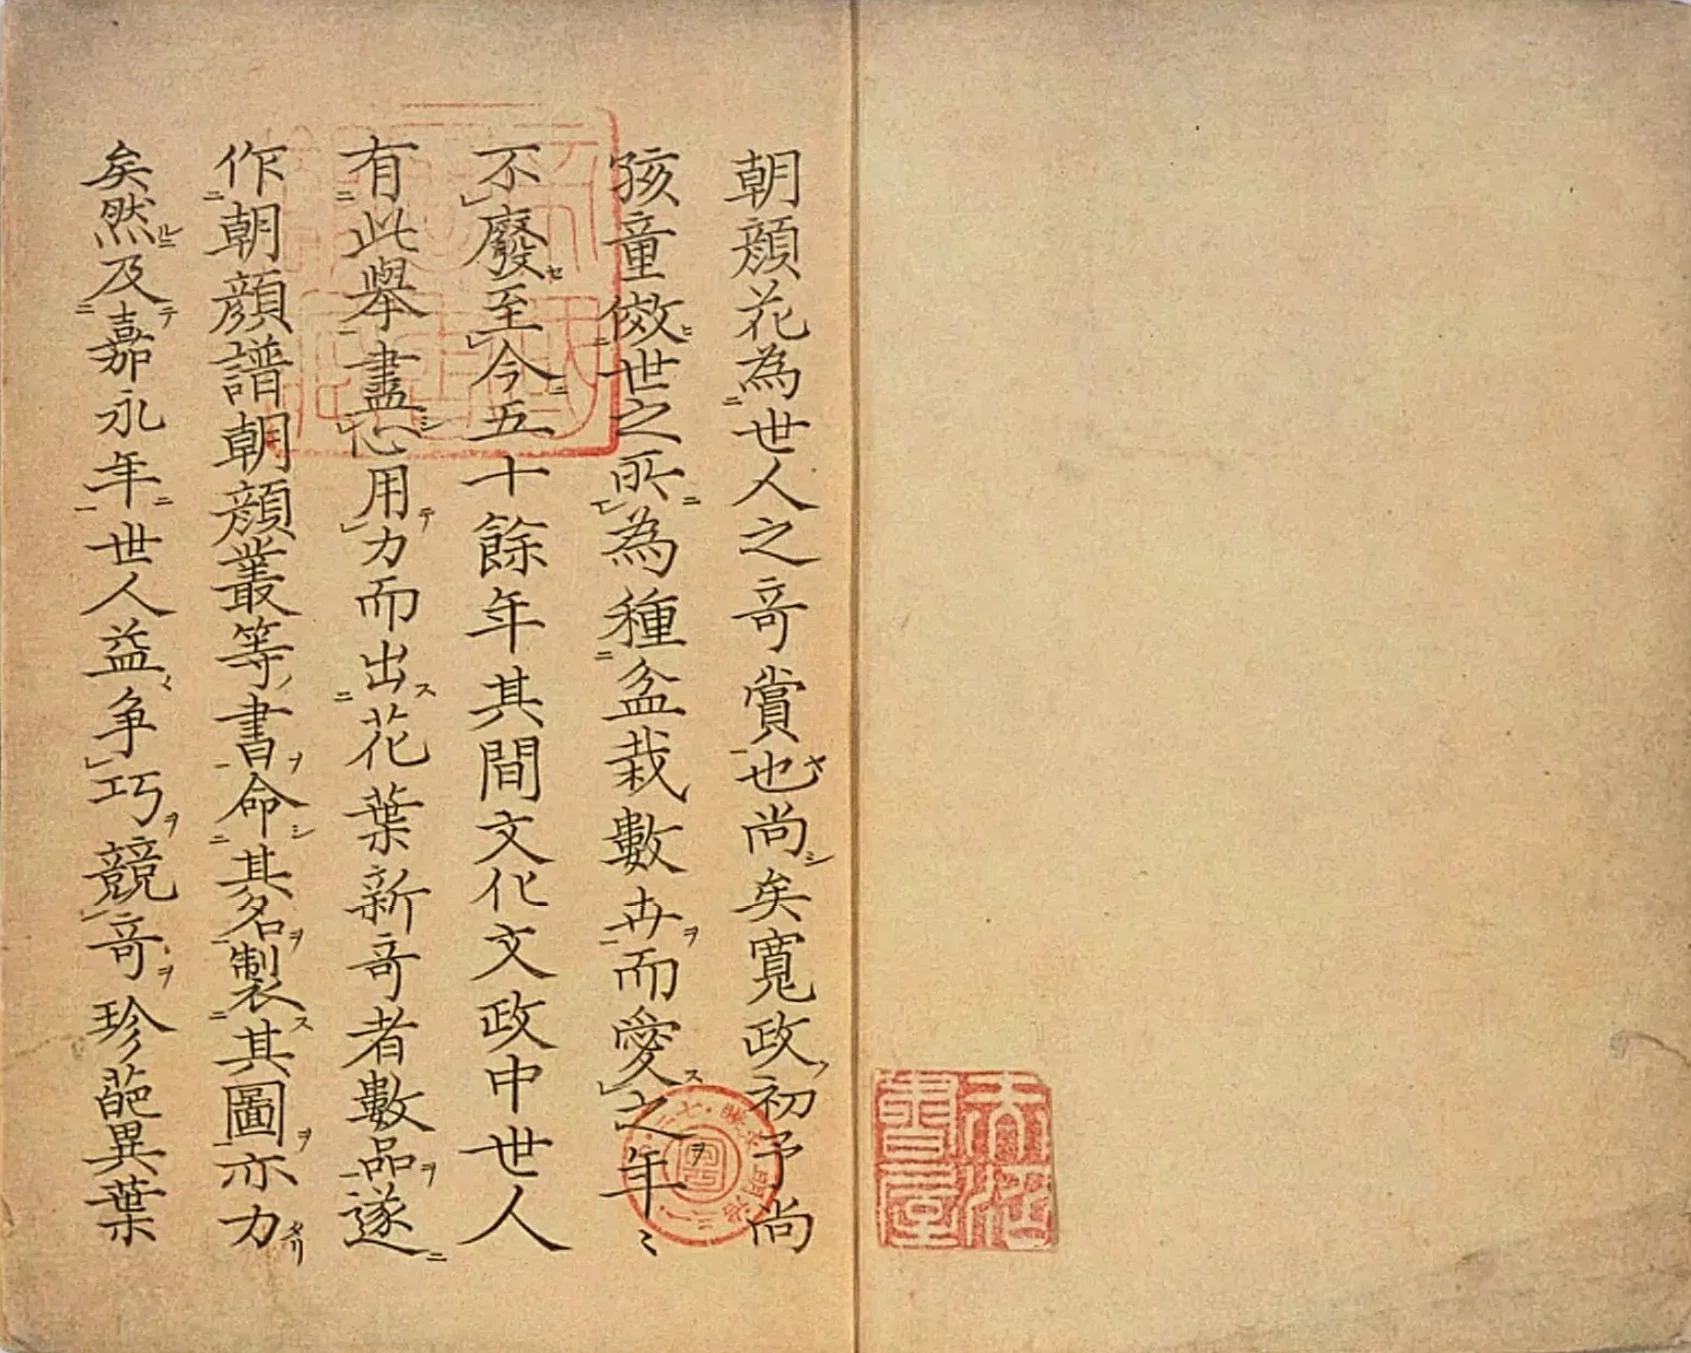 朝顔花為世人之奇賞也尚矣寛政初予尚
孩童傚世之所為種盆栽數卉而愛之年〻
不廢至今五十餘年其間文化文政中世人
有此擧盡心用力而出花葉新奇者數品遂
作朝顔譜朝顔叢等書命其名製其圖亦力
矣然及嘉永年世人益争巧競奇珍葩異葉